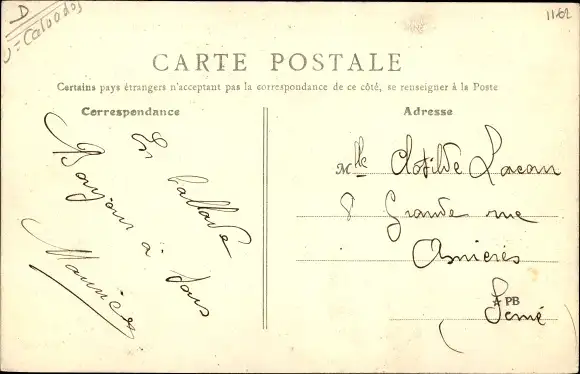 D
J=Calvados
1162
CARTE POSTALE
Certains pays étrangers n'acceptant pas la correspondance de ce côté, se renseigner à la Poste
Correspondance
Adresse
En ballade
Bonjour à tous
Maurice
Mlle Clotilde Lacan
8 Grande rue
Asnieres
PB
Seine